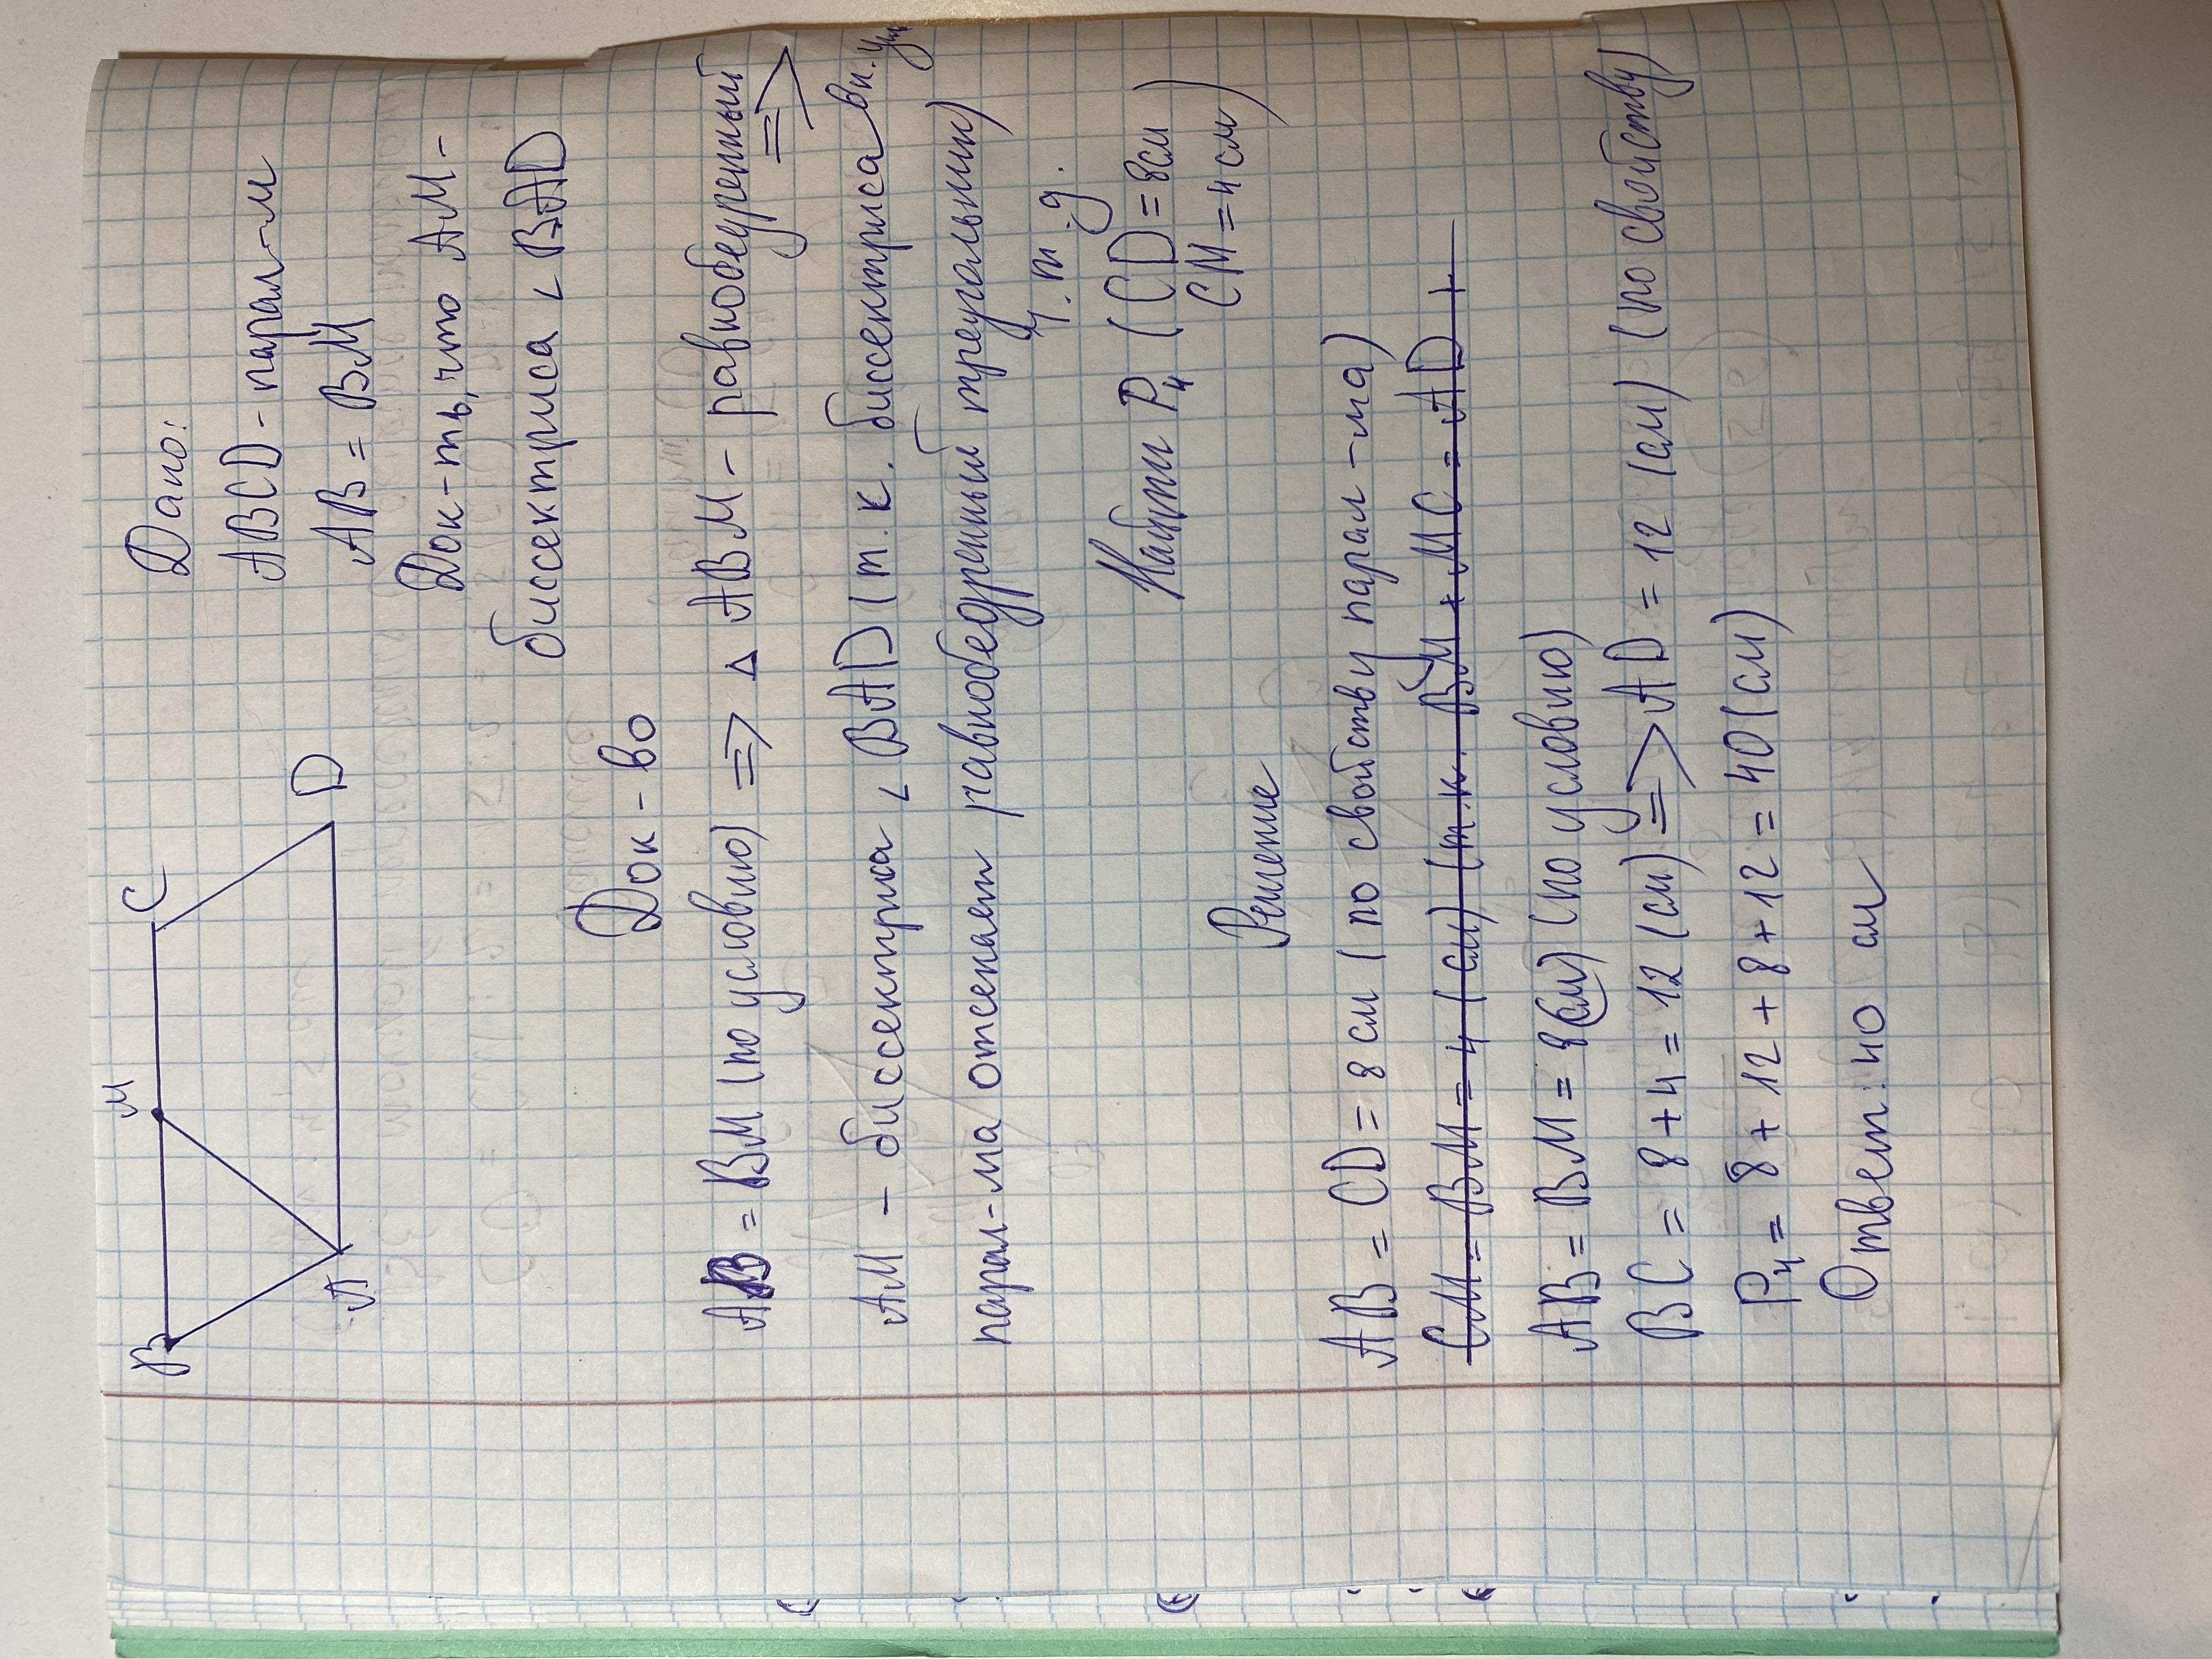 B
M
C
A
D
Дано:
ABCD - парал-м
AB = BM
Док-ть, что AM -
биссектриса ∠ BAD
Док-во
AB = BM (по условию) => △ ABM - равнобедренный
=>
AM - биссектриса ∠ BAD (т.к. биссектриса вн. угл
парал-ма отсекает равнобедренный треугольник)
ч.т.д.
Найти P₄ (CD = 8см
CM = 4 см)
Решение
AB = CD = 8 см (по свойству парал-ма)
CM = BM = 4 (см) (т.к. BM + MC = AD)
AB = BM = 8(см) (по условию)
BC = 8 + 4 = 12 (см) => AD = 12 (см) (по свойству)
P₄ = 8 + 12 + 8 + 12 = 40 (см)
Ответ: 40 см